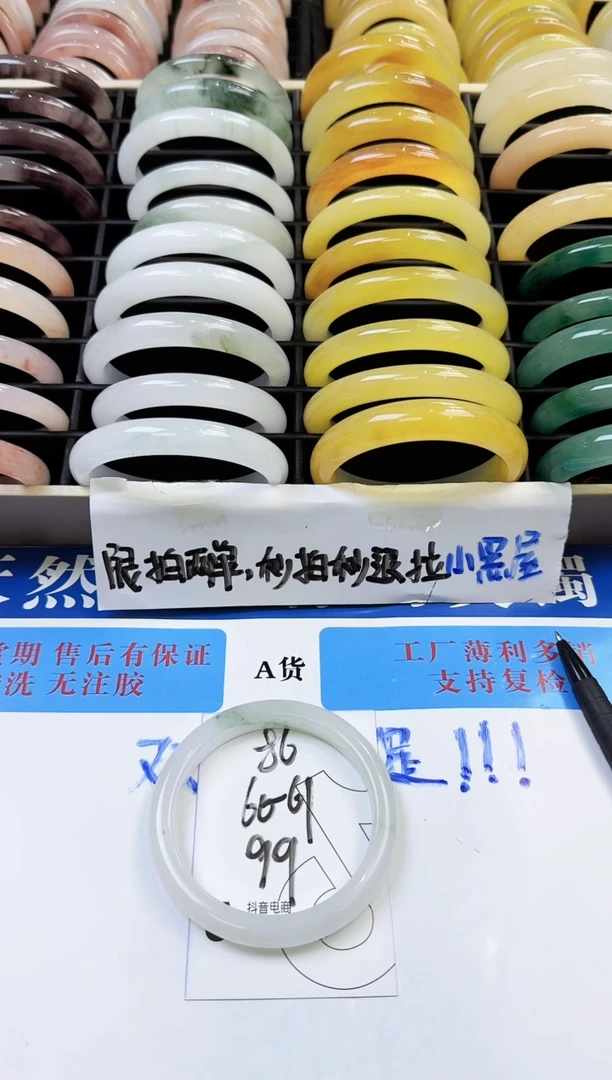 限拍两单,秒拍秒退拉小黑屋
天然
镯
货期 售后有保证
洗 无注胶
A货
工厂薄利多销
支持复检
足!!!
86
60-61
99
抖音电商